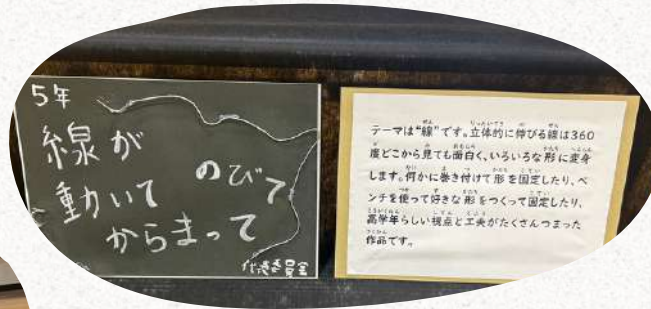 5年
線が
動いて
のびて
からまって
代表委員会
テーマは“線”です。立体的に伸びる線は360
度どこから見ても面白く、いろいろな形に変身
します。何かに巻き付けて形を固定したり、ペ
ンチを使って好きな形をつくって固定したり、
高学年らしい視点と工夫がたくさんつまった
作品です。